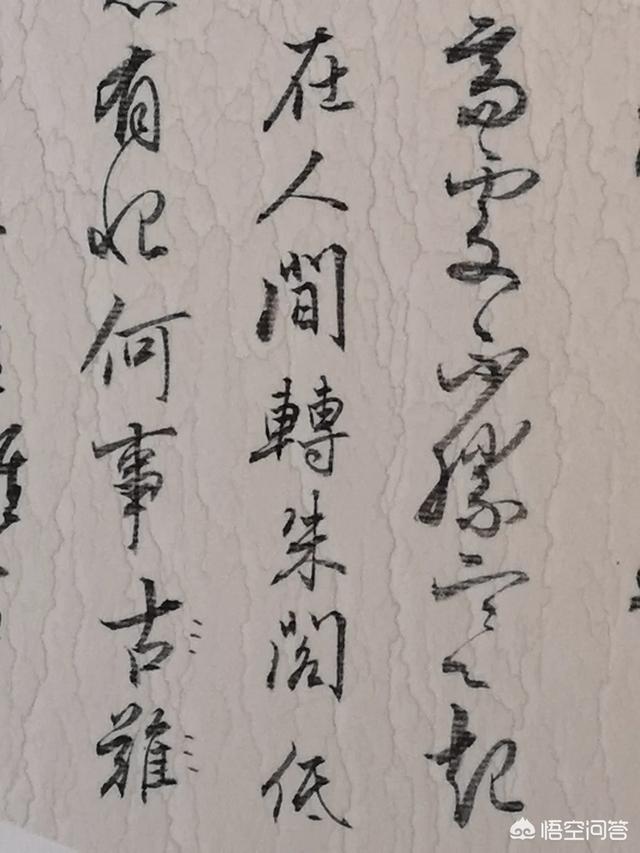 高處不勝寒起
在人間轉朱閣低
有恨何事古難
悟空问答